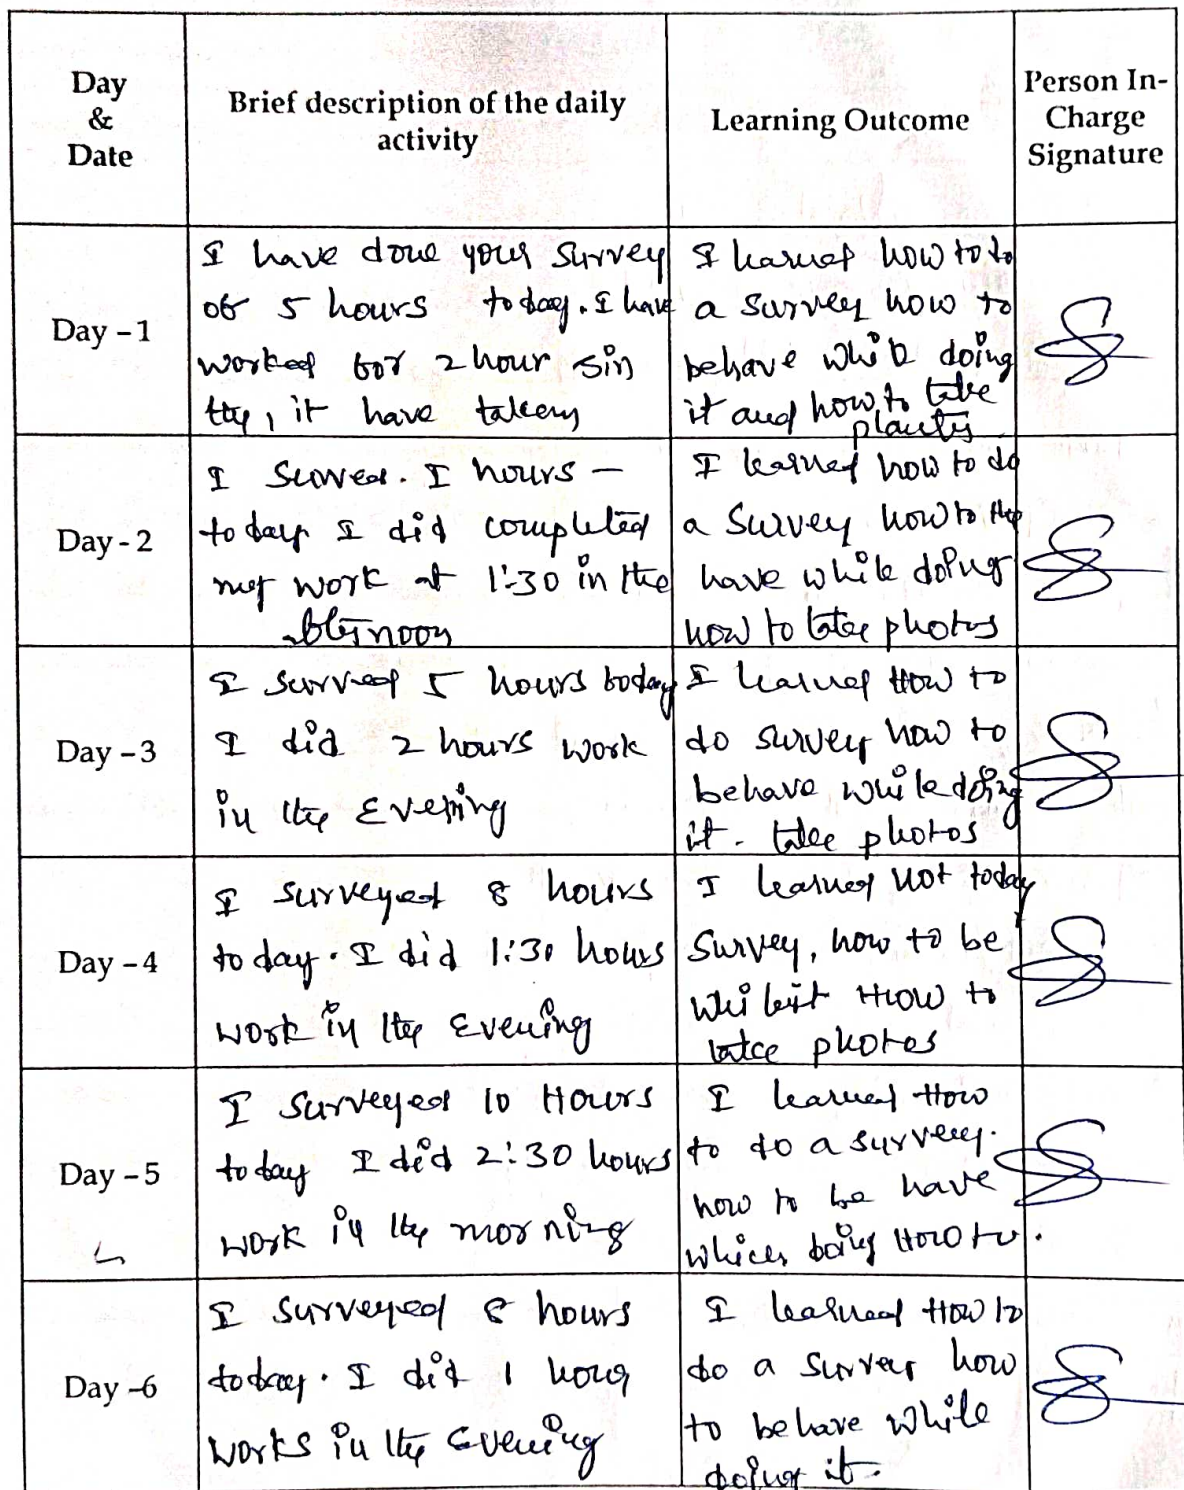 Day
&
Date
Brief description of the daily
activity
Learning Outcome
Person In-
Charge
Signature
Day - 1
I have done your survey
of 5 hours today. I have
worked for 2 hour
it have taken
I learned how to do
a survey how to
behave while doing
it and how to take
Day - 2
I hours -
today I did completed
my work at 1:30 in the
afternoon
I learned how to do
a survey how to
have while doing
how to take photos
Day - 3
I surved 5 hours today
I did 2 hours work
in the Evening
I learned How to
do survey how to
behave while doing
it - take photos
Day - 4
I surveyed 8 hours
today. I did 1:30 hours
work in the Evening
I learned not today
survey, how to be
How to
take photos
Day - 5
I surveyed 10 Hours
today I did 2:30 hours
work in the morning
I learned How
to do a survey.
how to be have
How to.
Day -6
I surveyed 8 hours
today. I did 1 hour
works in the Evening
I learned How to
do a survey how
to behave while
doing it.